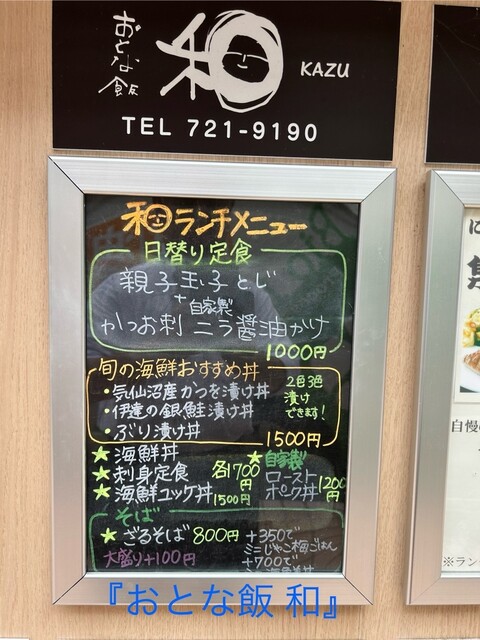 おとな飯
和
KAZU
TEL 721-9190
和ランチメニュー
日替り定食
親子玉子とじ
+
自家製
かつお刺 ニラ醤油かけ
1000円
旬の海鮮おすすめ丼
・気仙沼産かつを漬け丼
・伊達の銀鮭漬け丼
・ぶり漬け丼
2色3色
漬け
できます!
1500円
★海鮮丼
★刺身定食 各1700円
★海鮮ユッケ丼 1500円
★自家製
ロースト
ポーク丼 1200円
そば
★ざるそば 800円
大盛り+100円
+350で
ミニじゃこ梅ごはん
+700で
自慢の
※ラン
『おとな飯 和』